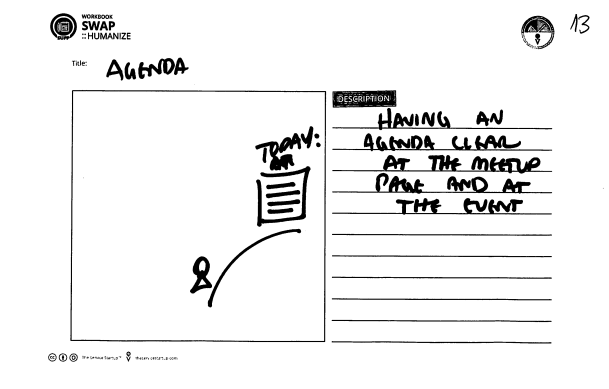 WORKBOOK
SWAP
:: HUMANIZE
13
Title: AGENDA
DESCRIPTION
HAVING AN
AGENDA CLEAR
AT THE MEETUP
PAGE AND AT
THE EVENT
TODAY:
The Service Startup™